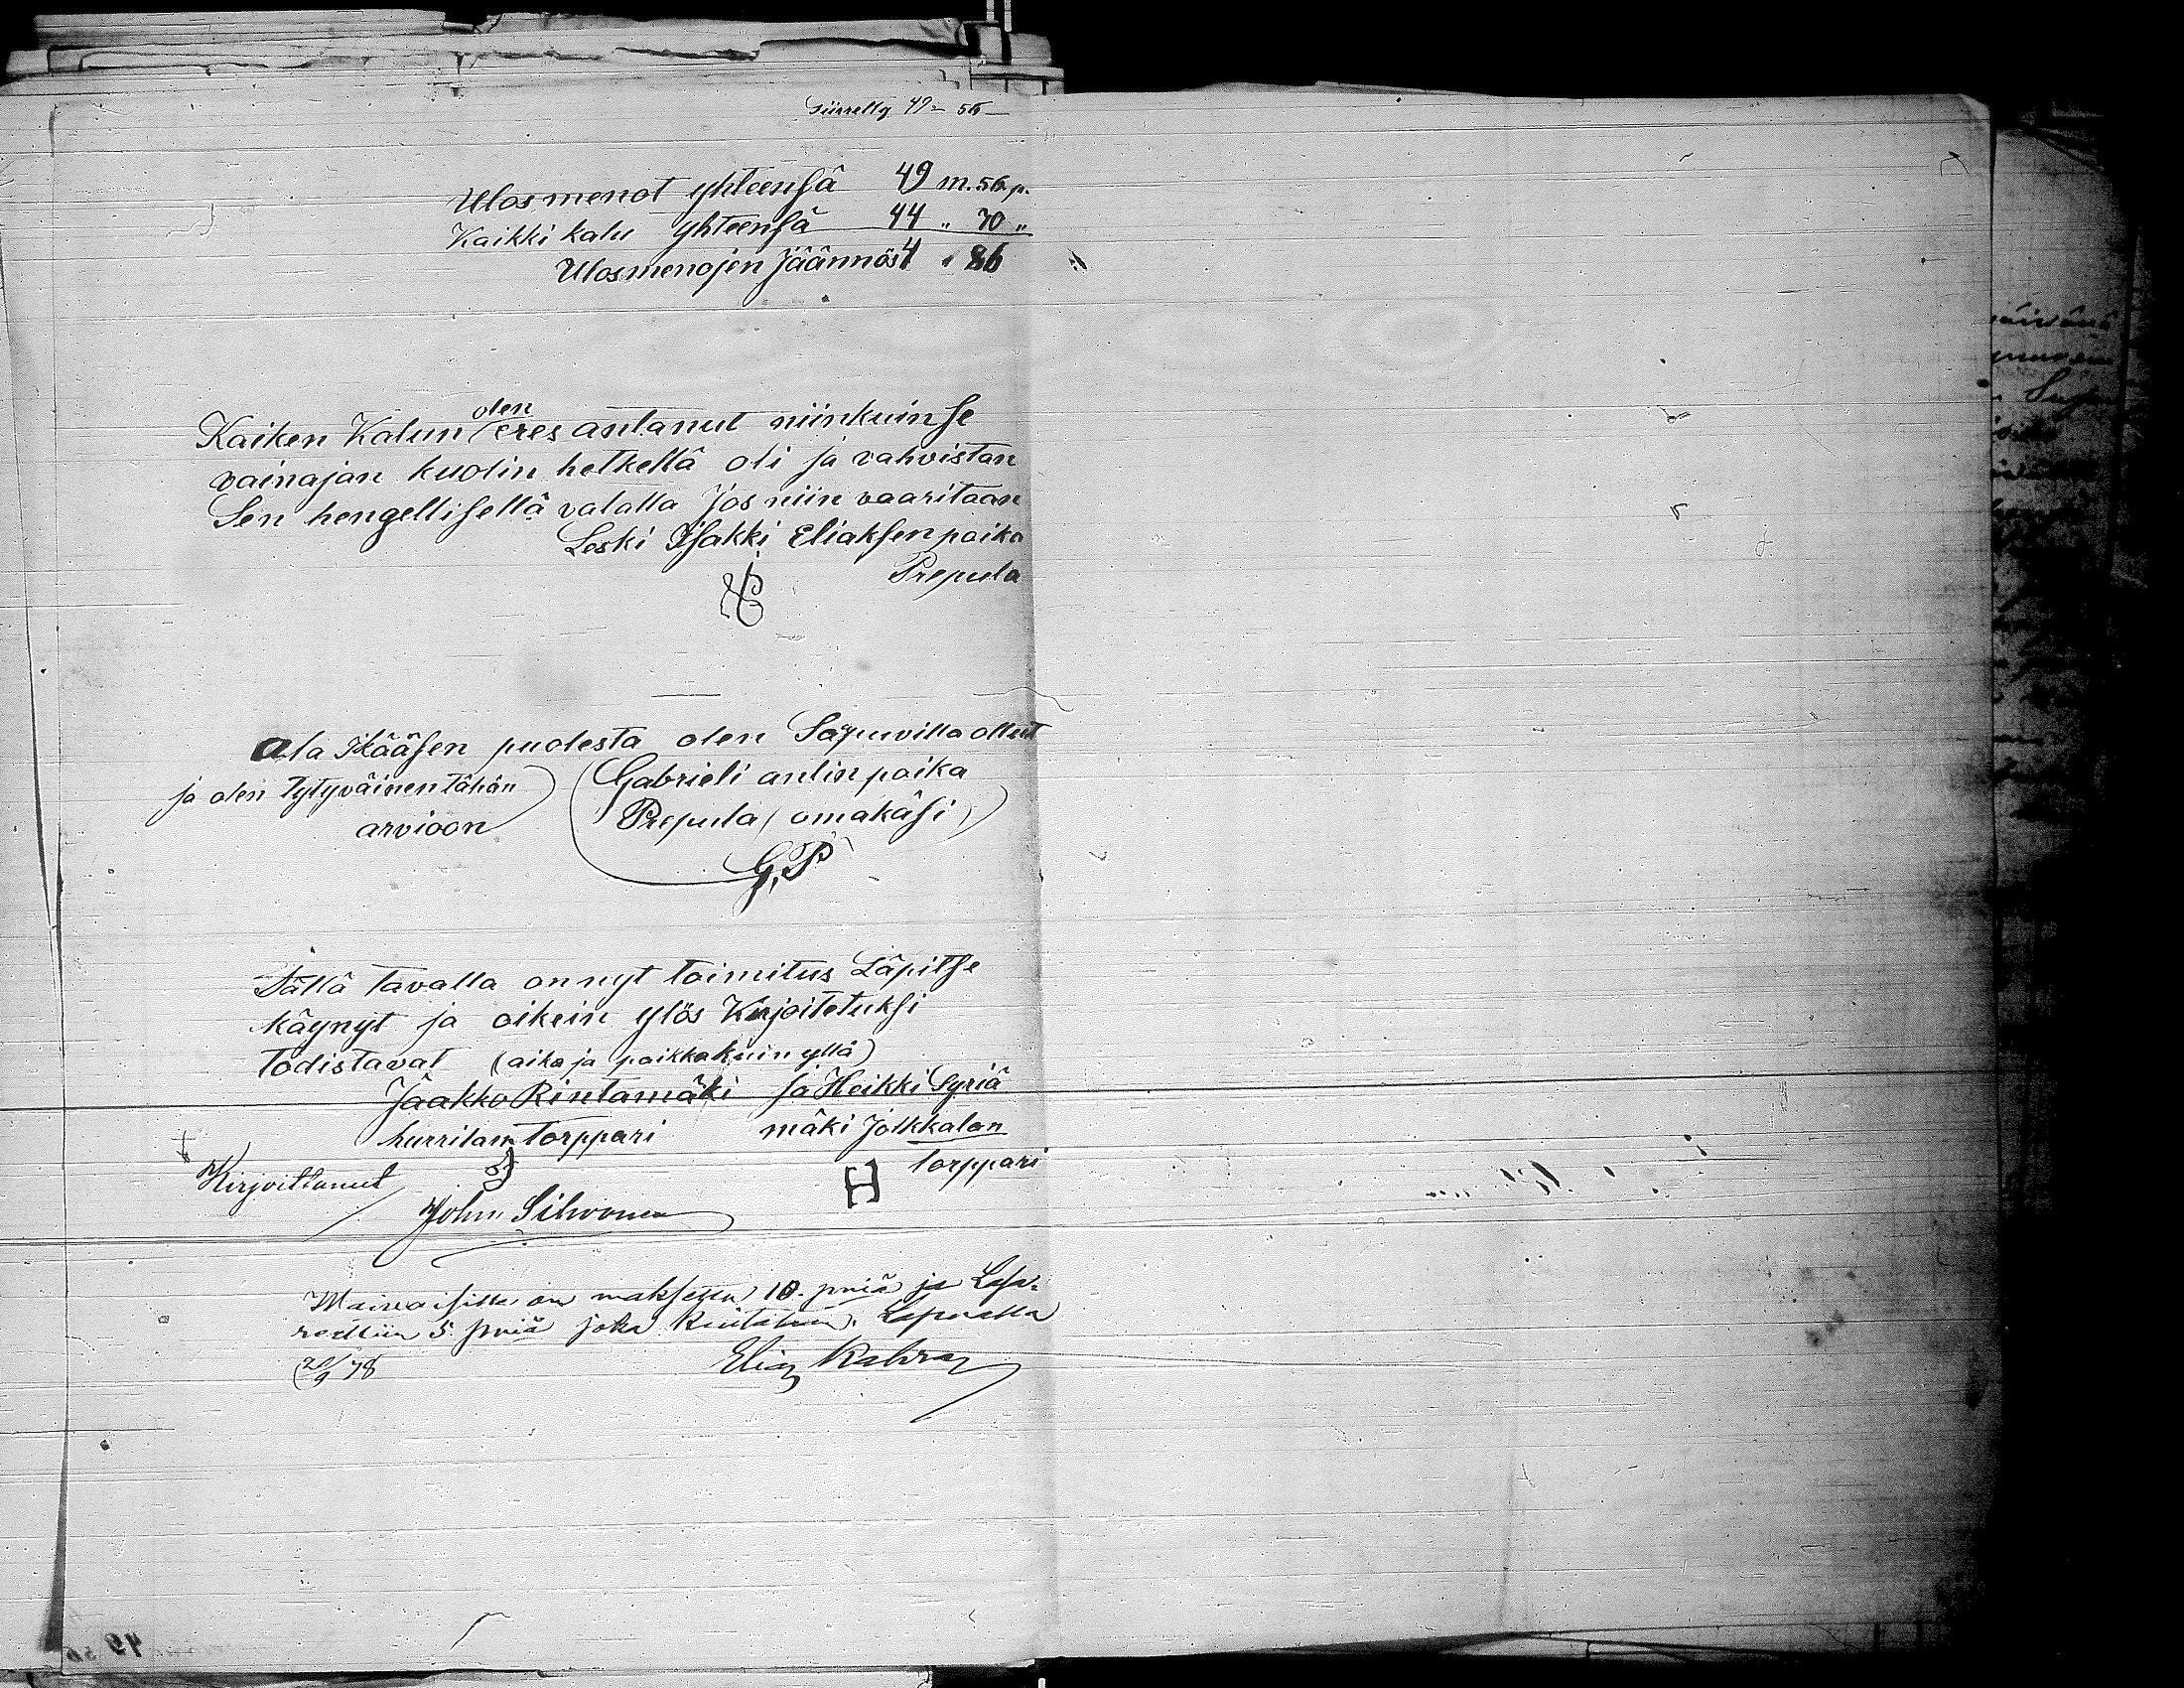 Siirretty 49 – 56 –
Ulosmenot yhteensä 49 m. 56 p.
Kaikki kalu yhteensä 44 " 70 "
Ulosmenojen Jäännös 4 " 86
olen
Kaiken Kalun eres antanut niinkuin se
vainajan kuolin hetkellä oli ja vahvistan
Sen hengellisellä valalla Jos niin vaaritaan
Leski Isakki Eliaksen poika
Prepula
ala Ikääsen puolesta olen Sapuvilla ollut
ja olen tytyväinen tähän
arvioon
Gabrieli antin poika
Prepula (omakäsi)
G,P
Tällä tavalla on nyt toimitus Läpitse
käynyt ja oikein ylös Kirjoitetuksi
todistavat (aika ja paikka kuin yllä)
Jaakko Rintamäki ja Heikki Syriä
hurrilan Torppari mäki Jolkkalan
torppari
Kirjoittanut
John Silvonen
Waivaisille on maksettu 10. pniä ja Lasa-
rettiin 5. pniä joka kuitataan. Lapualla
20/9 78 Elias
49 56